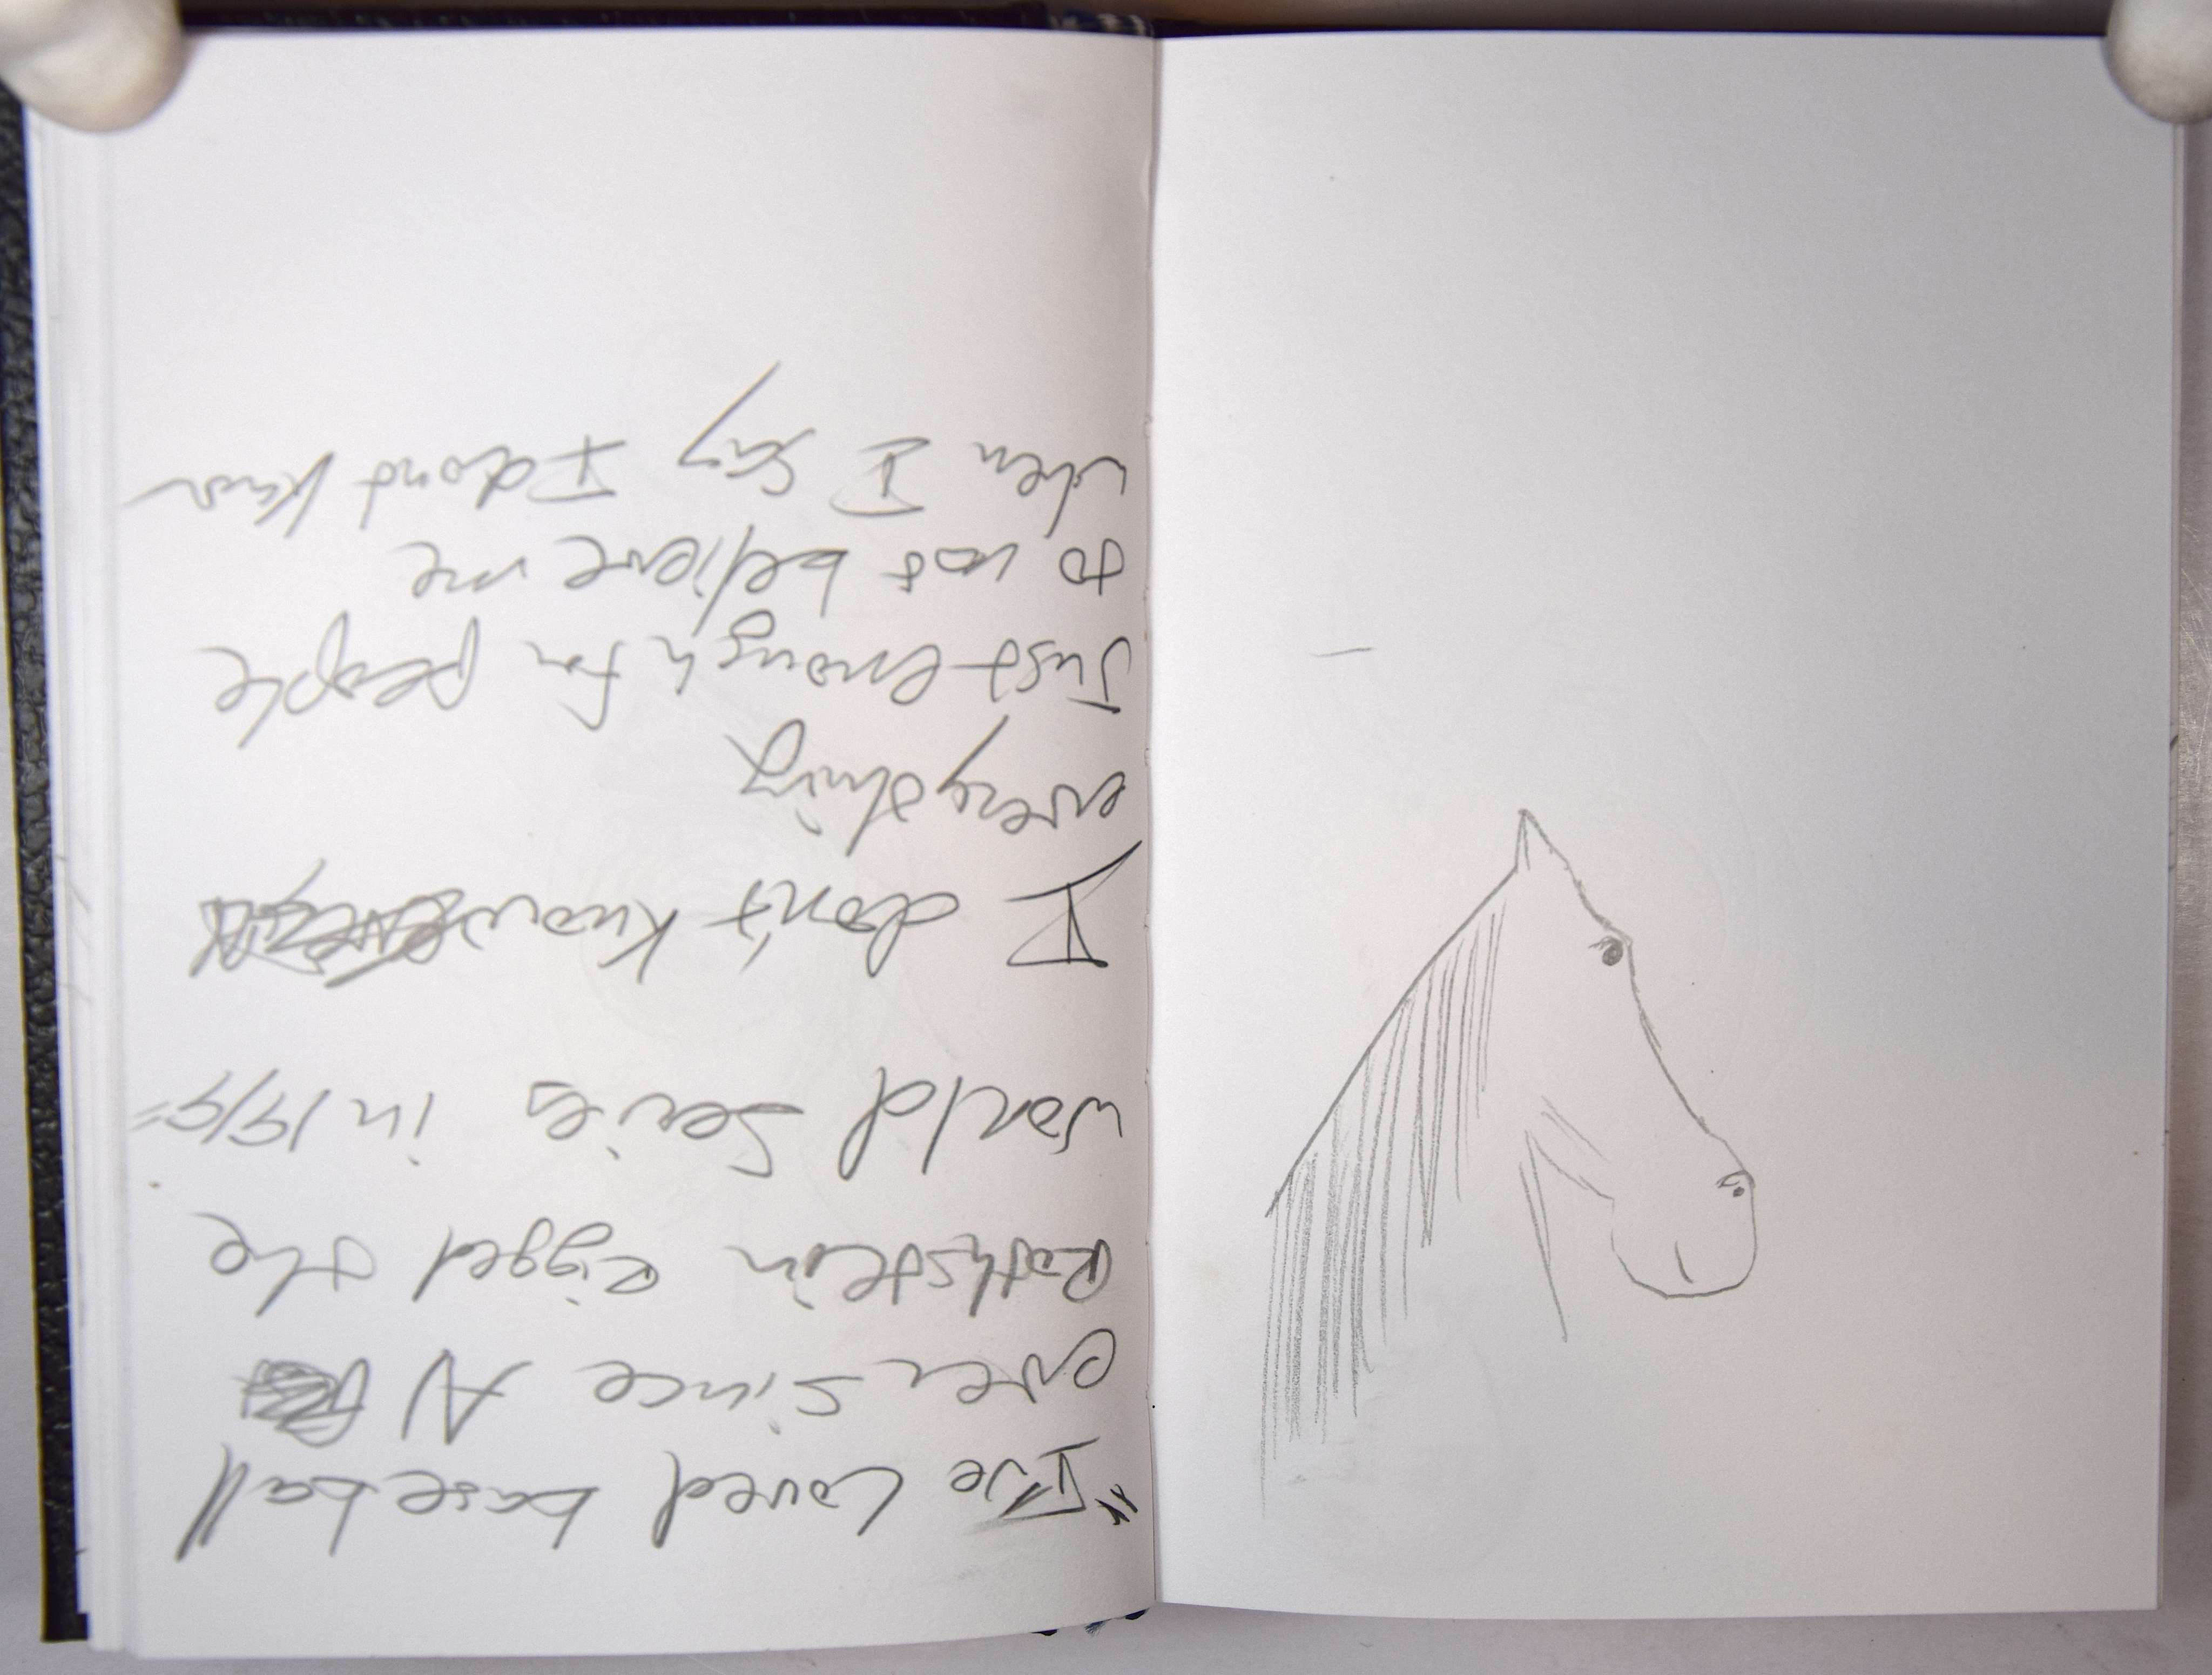 "I've Loved baseball
ever since Al
Rothstein Rigged the
world Series in 1919=
I don't know
everything
Just enough for people
to not believe me
when I say I dont know